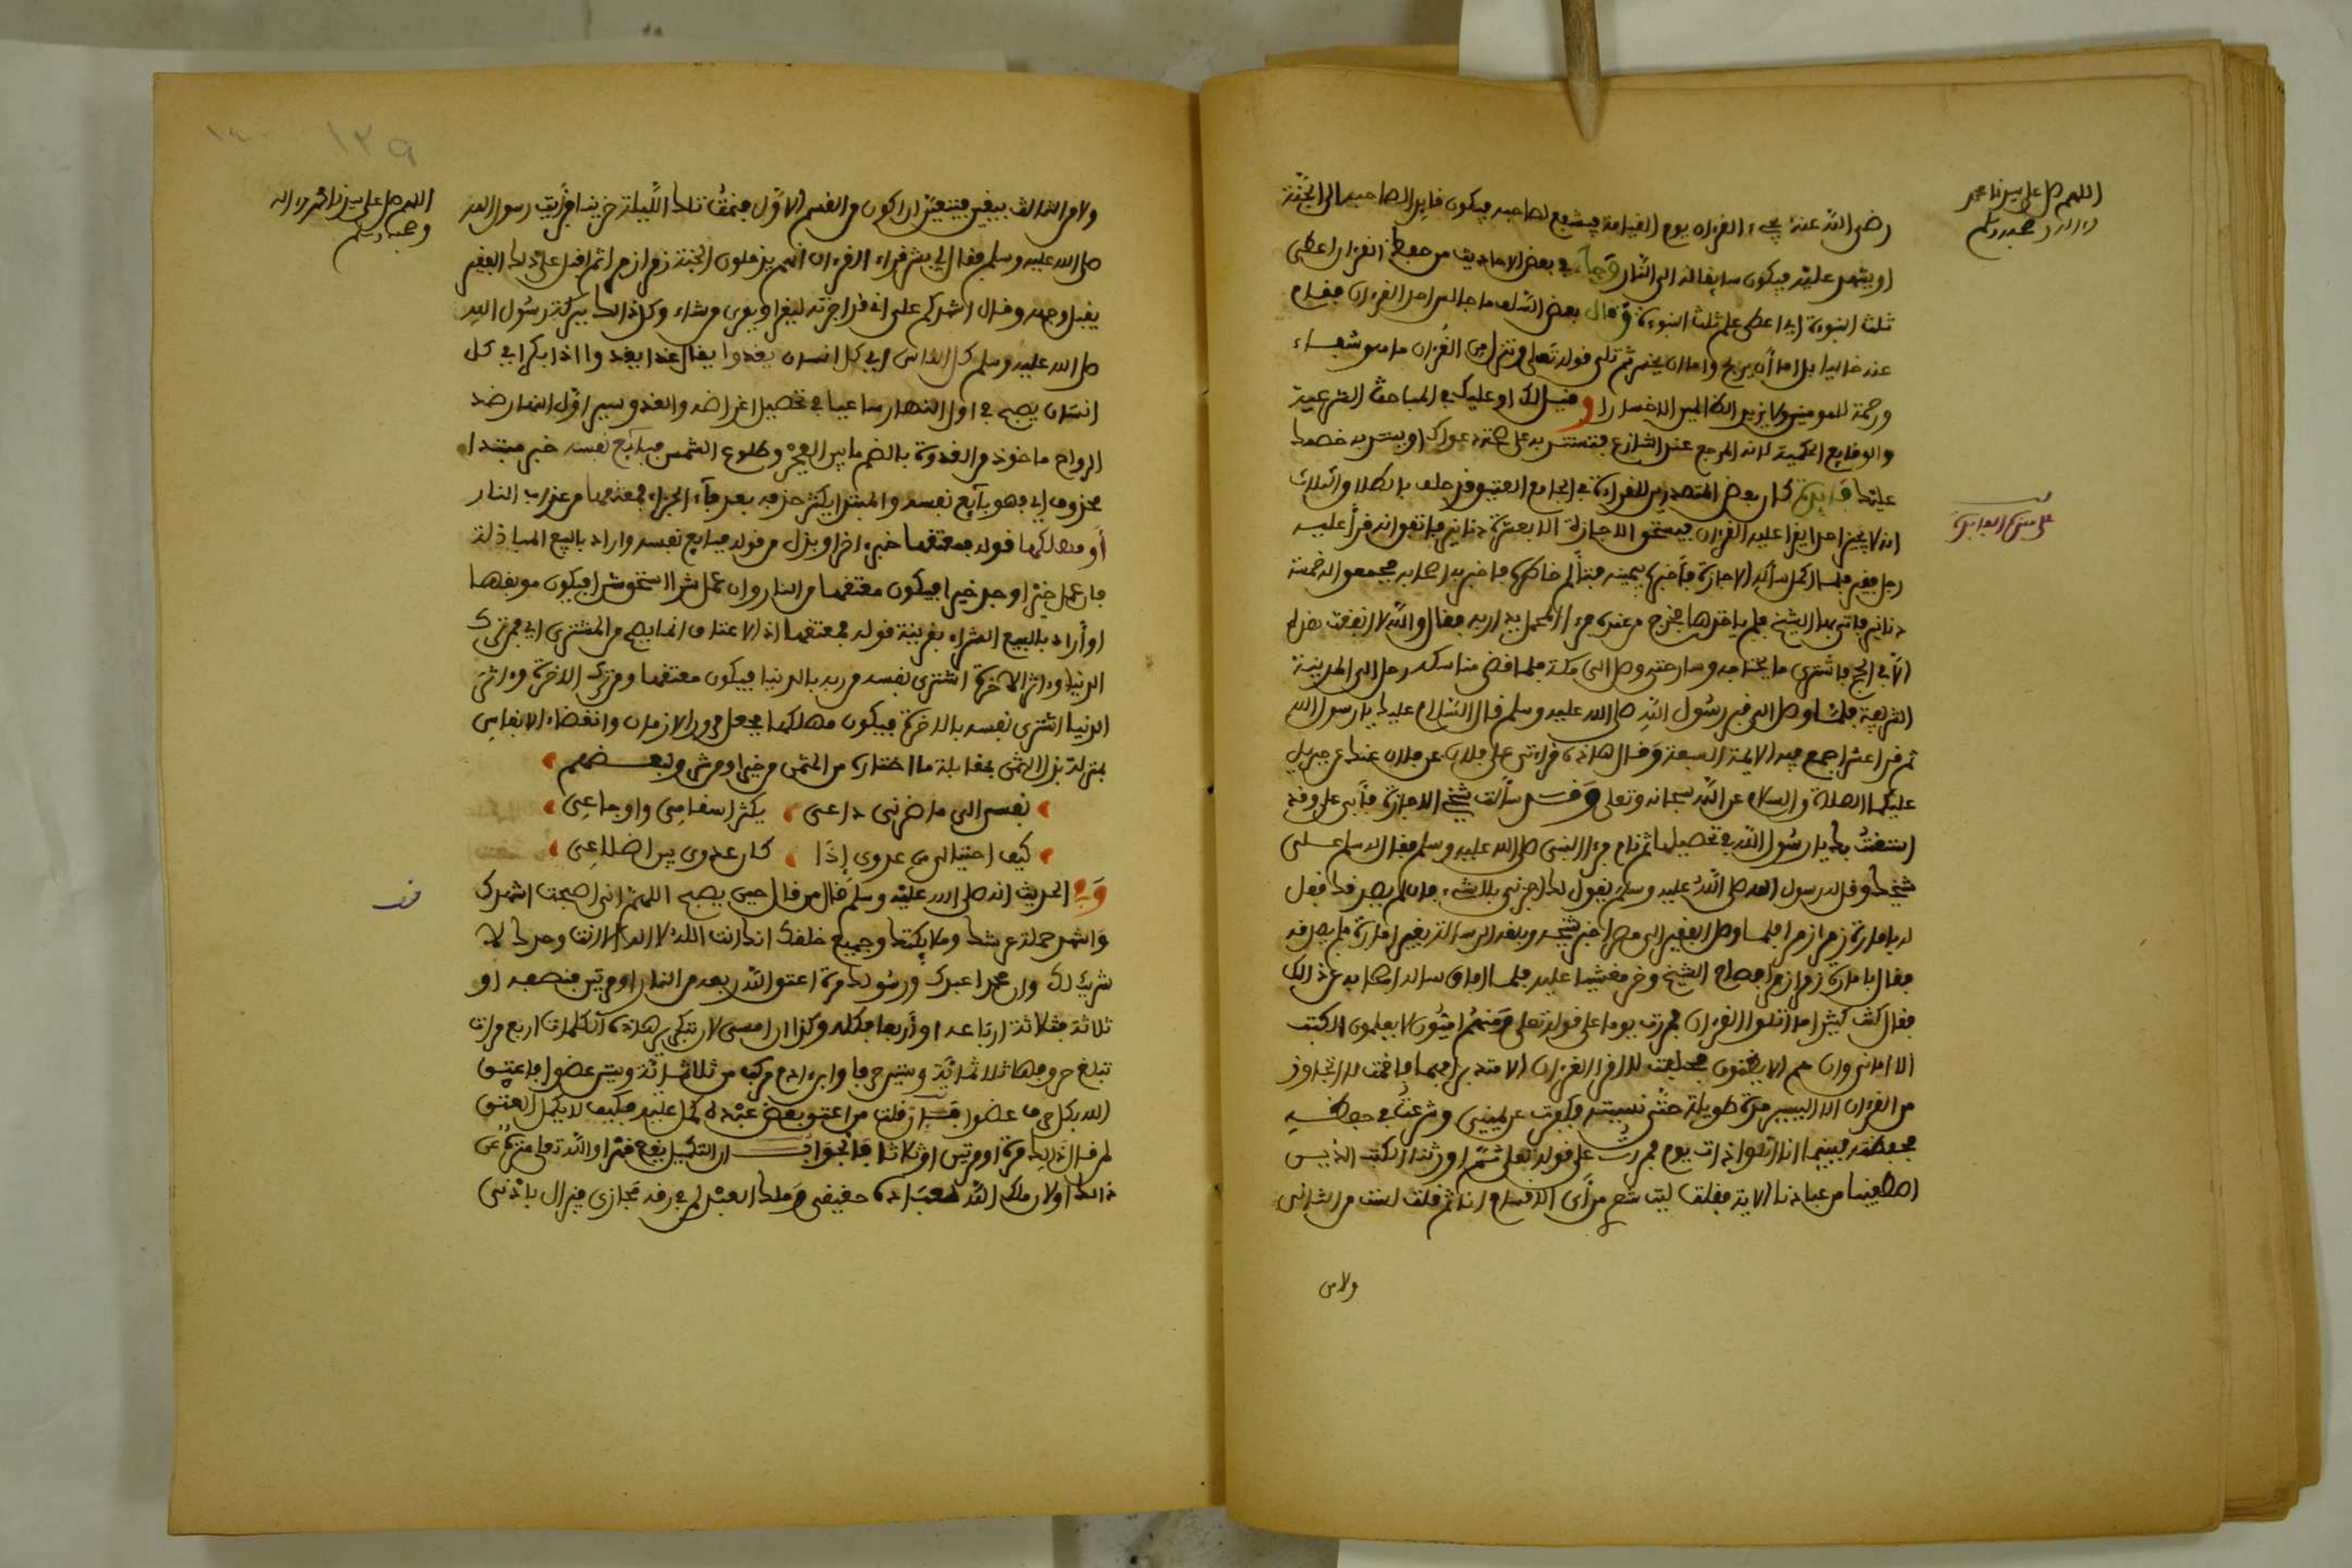 اللهم صل على سيدنا محمد
وآله وصحبه وسلم
رضى الله عنه يجيء القرءان يوم القيامة فيشفع لصاحبه فيكون قايدا لصاحبه الى الجنة
او يشهد عليه فيكون سايقا له الى النار وجاء في بعض الاحاديث من حفظ القرءان اعطى
ثلث النبوءة اي اعطى علم ثلث النبوءة وقال بعض السلف ما جالس احد القرءان فقام
عنه سالما بل اما أن يربح واما ان يخسر ثم تلى قوله تعلى وننزل من القرءان ما هو شفاء
ورحمة للمومنين ولا يزيد الظالمين الا خسارا وقيل لك او عليك في المباحث الشرعية
والوقايع الحكمية لانه المرجع عند التنازع فتستدل به على صحة دعواك او يستدل به خصمك
عليك فايدة كان بعض المتصدرين للقراءة في الجامع العتيق قد حلف بالطلاق الثلاث
انه لا يجيز احدا يقرا عليه القرءان فيستحق الاجازة الا بعشرة دنانير فاتفق انه قرأ عليه
رجل فقير فلما اكمل سأله الاجازة فأخبره بيمينه فتألم خاطره فاخبر به اصحابه فجمعوا له خمسة
دنانير فاتى بها الشيخ فلم ياخذها فخرج من عنده فرءا المحمل يدار به فقال والله لا انفقت هذه
الا في الحج فاشترى ما يحتاجه وسار حتى وصل الى مكة فلما قضى مناسكه رحل الى المدينة
الشريفة فلما وصل الى قبر رسول الله صلى الله عليه وسلم قال السلام عليك يا رسول الله
ثم قرا عشرا جمع فيه الايمة السبعة وقال هاذه قراءتي على فلان عن فلان عنك عن جبريل
عليكما الصلاة والسلام عن الله سبحانه وتعلى وقد سألت شيخي الاجازة فأبى علي وقد
استغثت بك يا رسول الله في تحصيلها ثم نام فرءا النبي صلى الله عليه وسلم فقال له سلم على
شيخك وقل له رسول الله صلى الله عليه وسلم يقول لك اجزني بلا شيء فان لم يصدقك فقل
له بامارة زمرا زمرا فلما وصل الفقير الى مصر اخبر شيخه وبلغه الرسالة بغير امارة فلم يصدقه
فقال بامارة زمرا زمرا فصاح الشيخ وخر مغشيا عليه فلما افاق ساله اصحابه عن ذالك
فقال كنت كثيرا ما اتلوا القرءان فمررت يوما على قوله تعلى ومنهم اميون لا يعلمون الكتب
الا اماني وان هم الا يظنون فحلفت ان لا اقرا القرءان الا متدبرا فيما فاقمت لا اتجاوز
من القرءان الا اليسير مدة طويلة حتى نسيته فكفرت عن يميني وشرعت في حفظه
فحفظته فبينما انا اتلوا ذات يوم مررت على قوله تعلى ثم اورثنا الكتب الذين
اصطفينا من عبادنا الاية فقلت ليت شعري من أي الاقسام انا ثم قلت لست من الثاني
ولا من
اللهم صل على سيدنا محمد وءاله
وصحبه وسلم
ولا من الثالث بيقين فيتعين ان اكون من القسم الاول فنمت تلك الليلة حزينا فرأيت رسول الله
صلى الله عليه وسلم فقال لي بشر قراء القرءان انهم يدخلون الجنة زمرا زمرا ثم اقبل على ذلك الفقير
يقبل وجهه وقال اشهدكم على اني قد اجزته ليقرا ويقري من شاء وكل ذالك ببركة رسول الله
صلى الله عليه وسلم كل الناس اي كل انسان يغدوا يقال غدا يغدوا اذا بكر اي كل
انسان يصبح في اول النهار ساعيا في تحصيل اغراضه والغدو سير اول النهار ضد
الرواح ماخوذ من الغدوة بالضم ما بين الفجر وطلوع الشمس فبآئع نفسه خبر مبتدا
محذوف اي فهو بآئع نفسه والمبتدا يكثر حذفه بعد فآء الجزاء فمعتقها من عذاب النار
أو مهلكها قوله فمعتقها خبر ءاخر او بدل من قوله فبايع نفسه واراد بالبيع المبادلة
فان عمل خيرا وجد خيرا فيكون معتقها من النار وان عمل شرا استحق شرا فيكون موبقها
او أراد بالبيع الشراء بقرينة قوله فمعتقها اذ الاعتاق انما يصح من المشتري اي فمن ترك
الدنيا وءاثر الاخرة اشترى نفسه من ربه بالدنيا فيكون معتقها ومن ترك الاخرة وءاثر
الدنيا اشترى نفسه بالاخرة فيكون مهلكها فجعل مرور الازمان وانقضاء الانفاس
بمنزلة بذل الثمن بمقابلة ما اختاره من المثمن من خير او من شر ولبعضهم
نفسي الى ما ضرني داعي يكثر اسقامي واوجاعي
كيف احتيالي من عدوي إذا كان عدوي بين اضلاعي
وفي الحديث انه صلى الله عليه وسلم قال من قال حين يصبح اللهم اني اصبحت اشهدك
واشهد حملة عرشك وملايكتك وجميع خلقك انك انت الله لا اله الا انت وحدك لا
شريك لك وان محمدا عبدك ورسولك مرة اعتق الله ربعه من النار او مرتين فنصفه او
ثلاثة فثلاثة ارباعه او أربعا فكله وكذا ان امسى لان تكرير هذه الكلمات اربع مرات
تبلغ حروفها ثلاثمائة وستين حرفا وابن ءادم مركب من ثلاثمائة وستين عضوا فاعتق
الله بكل حرف عضوا فان قلت من اعتق بعض عبده كمل عليه فكيف لا يكمل العتق
لمن قال ذالك مرة او مرتين او ثلاثا فالجواب ان التكميل يقع قهرا والله تعلى منزه عن
ذالك اولان ملك الله لعباده حقيقي وملك العبد لمن في رقه مجازي فيزال بادنى